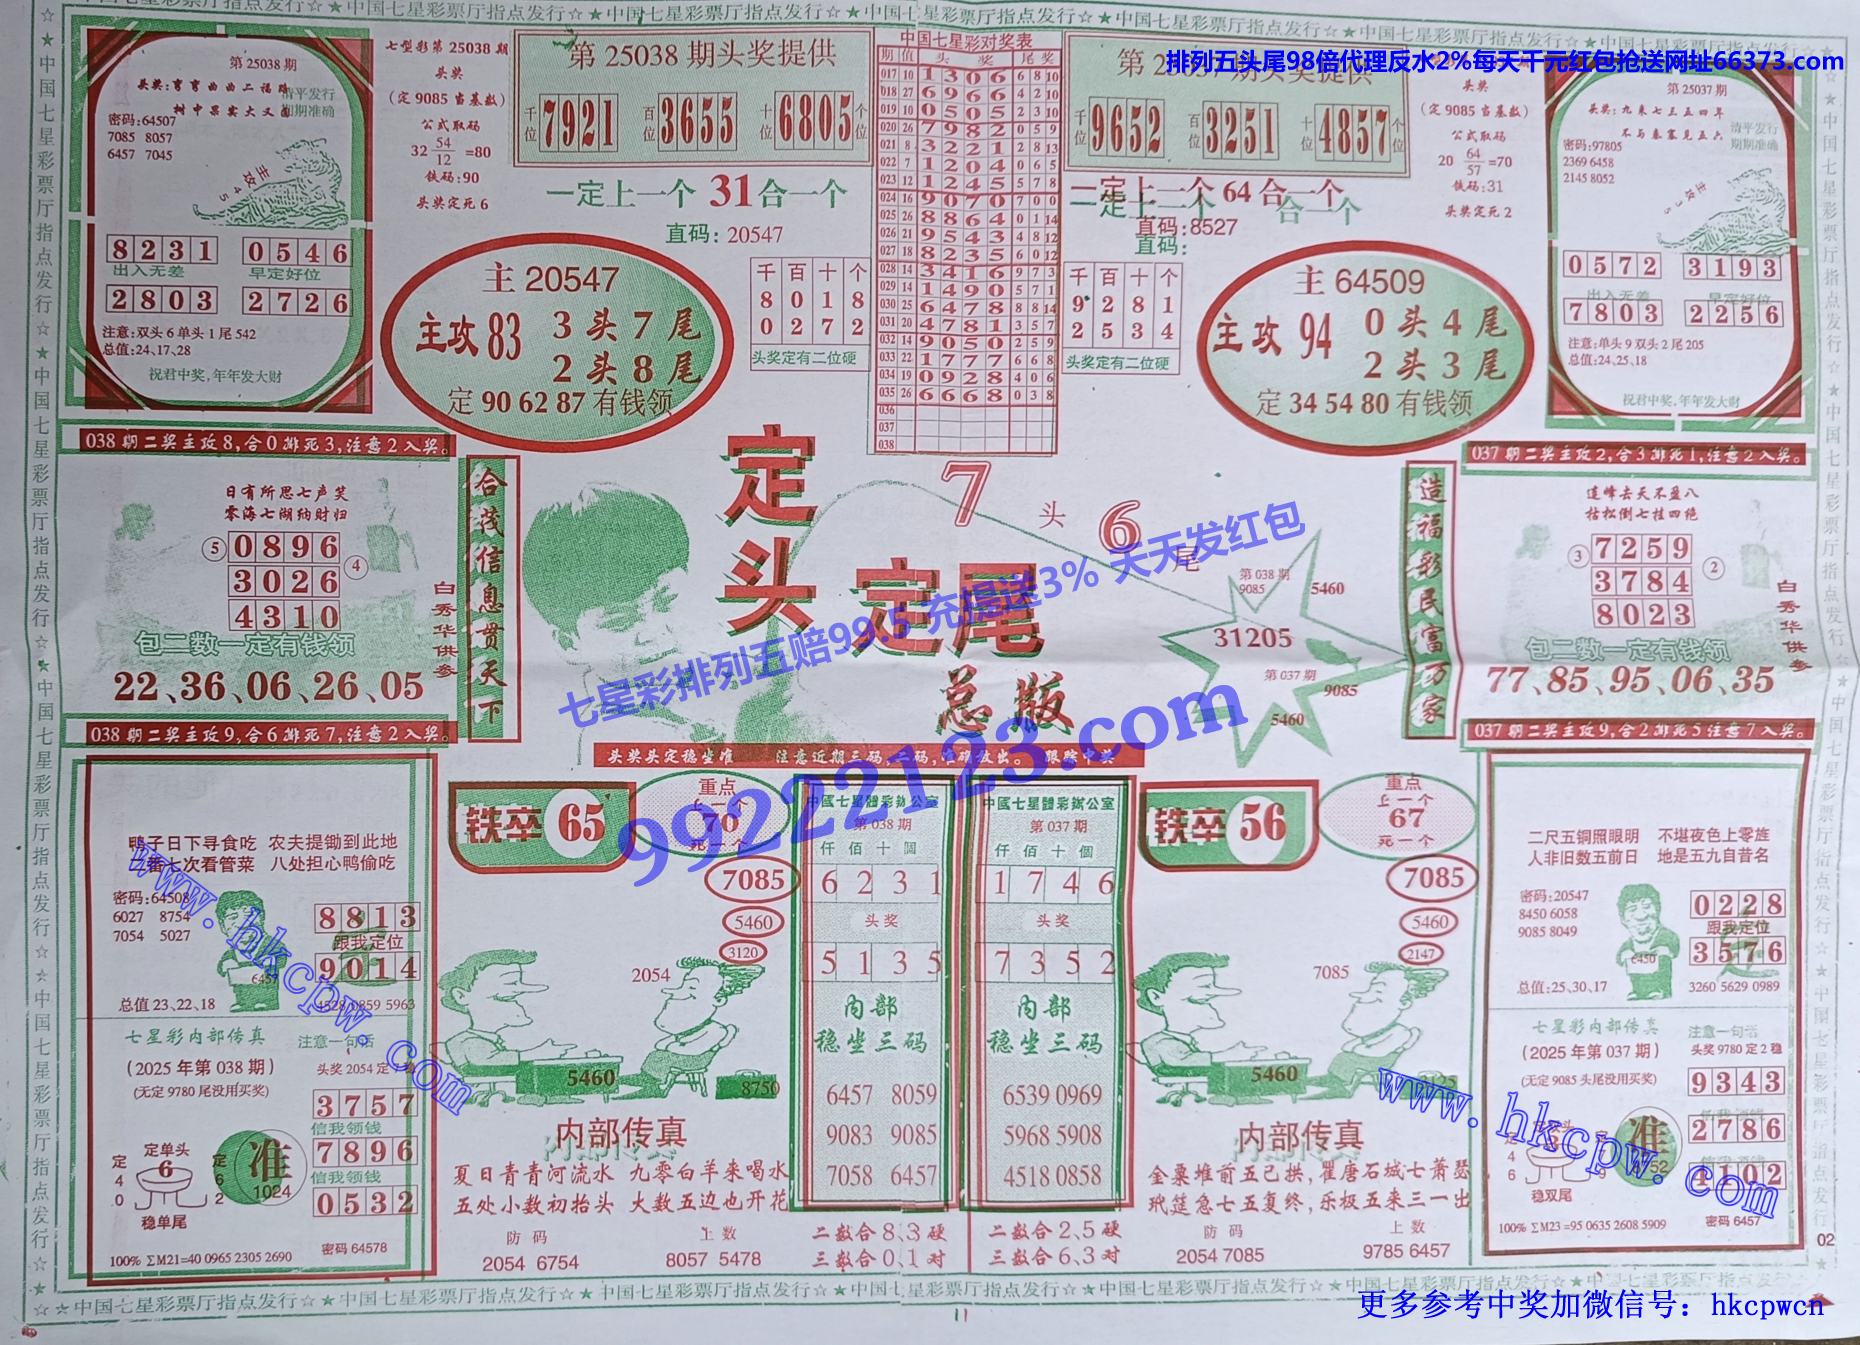 ☆★中国七星彩票厅指点发行☆★中国七星彩票厅指点发行☆★中国七星彩票厅指点发行☆★中国七星彩票厅指点发行☆
排列五头尾98倍代理反水2%每天千元红包抢送网址66373.com
第 25038 期
头奖:弯弯曲曲二福路
树中果实大又圆
清平发行
期期准确
密码:64507
7085 8057
6457 7045
主攻45
8231 0546
出入无差 早定好位
2803 2726
注意:双头 6 单头 1 尾 542
总值:24、17、28
祝君中奖,年年发大财
七型彩第 25038 期
头奖
(定 9085 当基数)
公式取码
32 54/12 =80
铁码:90
头奖定死 6
第 25038 期头奖提供
千位 7921 百位 3655 十位 6805 个位
一定上一个 31合一个
直码: 20547
主 20547
主攻 83 3 头 7 尾
2 头 8 尾
定 90 62 87 有钱领
千 百 十 个
8 0 1 8
0 2 7 2
头奖定有二位硬
中国七星彩对奖表
期 值 头 奖 尾 奖
017 10 1306 6 8 10
018 27 6966 4 2 10
019 10 0505 2 3 10
020 26 7982 0 5 9
021 8 3221 2 8 13
022 7 1204 0 6 5
023 12 1245 5 7 8
024 16 9070 7 0 0
025 26 8864 0 1 14
026 21 9543 4 8 12
027 18 8235 6 0 12
028 14 3416 9 7 3
029 14 1490 5 7 1
030 25 6478 8 8 14
031 20 4781 3 5 7
032 14 9050 2 5 9
033 22 1777 6 6 8
034 19 0928 4 0 6
035 26 6668 0 3 8
036
037
038
千位 9652 百位 3251 十位 4857 个位
二定上一个 64 合一个
直码: 8527
直码:
千 百 十 个
9 2 8 1
2 5 3 4
头奖定有二位硬
主 64509
主攻 94 0 头 4 尾
2 头 3 尾
定 34 54 80 有钱领
头奖
(定 9085 当基数)
公式取码
20 64/57 =70
铁码:31
头奖定死 2
第 25037 期
头奖:九来七三五四年
不与秦塞见五六
清平发行
期期准确
密码:97805
2369 6458
2145 8052
主攻35
0572 3193
出入无差 早定好位
7803 2256
注意:单头 9 双头 2 尾 205
总值:24、25、18
祝君中奖,年年发大财
038 期二奖主攻8,合0排死3,注意2入奖。
日有所思七声笑
零海七湖纳财归
⑤ 0896
3026 ④
4310
包二数一定有钱领
白秀华供参
22、36、06、26、05
合茂信息贯天下
定头定尾
总版
7 头 6 尾
第 038 期
9085
5460
31205
第 037 期
9085
5460
七星彩排列五赔99.5 充提送3% 天天发红包
99222123.com
造福彩民富万家
037 期二奖主攻2,合3排死1,注意2入奖。
连峰去天不盈八
枯松倒七挂四绝
③ 7259
3784 ②
8023
包二数一定有钱领
白秀华供参
77、85、95、06、35
038 期二奖主攻9,合6排死7,注意2入奖。
头奖头定稳坐准 注意近期三码,二码,准确放出。 跟踪中奖
037 期二奖主攻9,合2排死5注意7入奖。
鸭子日下寻食吃 农夫提锄到此地
二番七次看管菜 八处担心鸭偷吃
密码:64508
6027 8754
7054 5027
6457
8813
跟我定位
9014
总值 23、22、18
4528 0859 5963
七星彩内部传真
(2025 年第 038 期)
(无定 9780 尾没用买奖)
注意一句话
头奖 2054 定 稳
3757
信我领钱
7896
信我领钱
0532
定单头
6
稳单尾
定 4 0
定 6 2
准
1024
100% ΣM21=40 0965 2305 2690
密码 64578
铁卒 65
重点
上一个
70
死一个
7085
5460
3120
2054
5460
8750
内部传真
夏日青青河流水 九零白羊来喝水
五处小数初抬头 大数五边也开花
防码 上数
2054 6754 8057 5478
中國七星體彩辦公室
第 038 期
仟 佰 十 個
6 2 3 1
头 奖
5 1 3 5
内部
稳坐三码
6457 8059
9083 9085
7058 6457
二数合 8、3 硬
三数合 0、1 对
中國七星體彩辦公室
第 037 期
仟 佰 十 個
1 7 4 6
头 奖
7 3 5 2
内部
稳坐三码
6539 0969
5968 5908
4518 0858
二数合 2、5 硬
三数合 6、3 对
铁卒 56
重点
上一个
67
死一个
7085
5460
2147
7085
5460
内部传真
金粟堆前五已拱,瞿唐石城七萧瑟
玳筵急七五复终,乐极五来三一出
防码 上数
2054 7085 9785 6457
二尺五铜照眼明 不堪夜色上零旌
人非旧数五前日 地是五九自昔名
密码:20547
8450 6058
9085 8049
6450
0228
跟我定位
3576
总值:25、30、17
3260 5629 0989
七星彩内部传真
(2025 年第 037 期)
(无定 9085 头尾没用买奖)
注意一句话
头奖 9780 定 2 稳
9343
2786
4102
稳双尾
准
100% ΣM23 =95 0635 2608 5909
密码 6457
www.hkcpw.com
www.hkcpw.com
02
☆★中国七星彩票厅指点发行☆★中国七星彩票厅指点发行☆★中国七星彩票厅指点发行☆★中国七星彩票厅指点发行☆
更多参考中奖加微信号: hkcpwcn
11